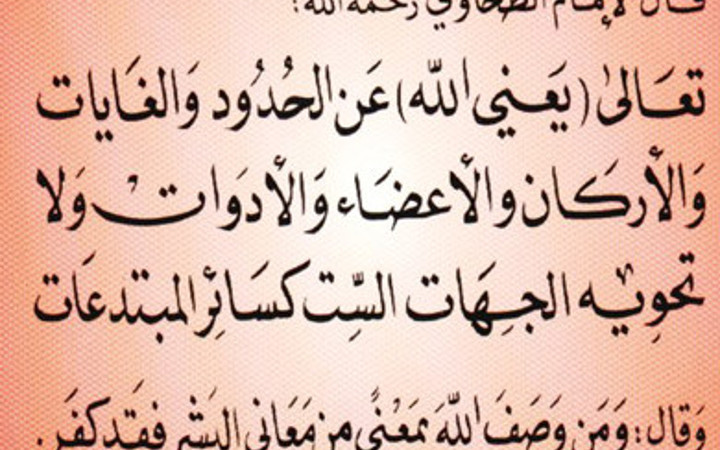 قال الإمام الطحاوي رحمه الله:
تعَالىٰ (يَعني الله) عَن الحُدُود وَالغَايات
وَالأركَان والأعضَاء وَالأدوَات وَلا
تحويْه الجِهَات السِّت كسَائِر المبتدعَات
وَقال: وَمَن وَصَفَ اللهَ بمَعْنًى من مَعَاني البَشَر فقَد كفَر.